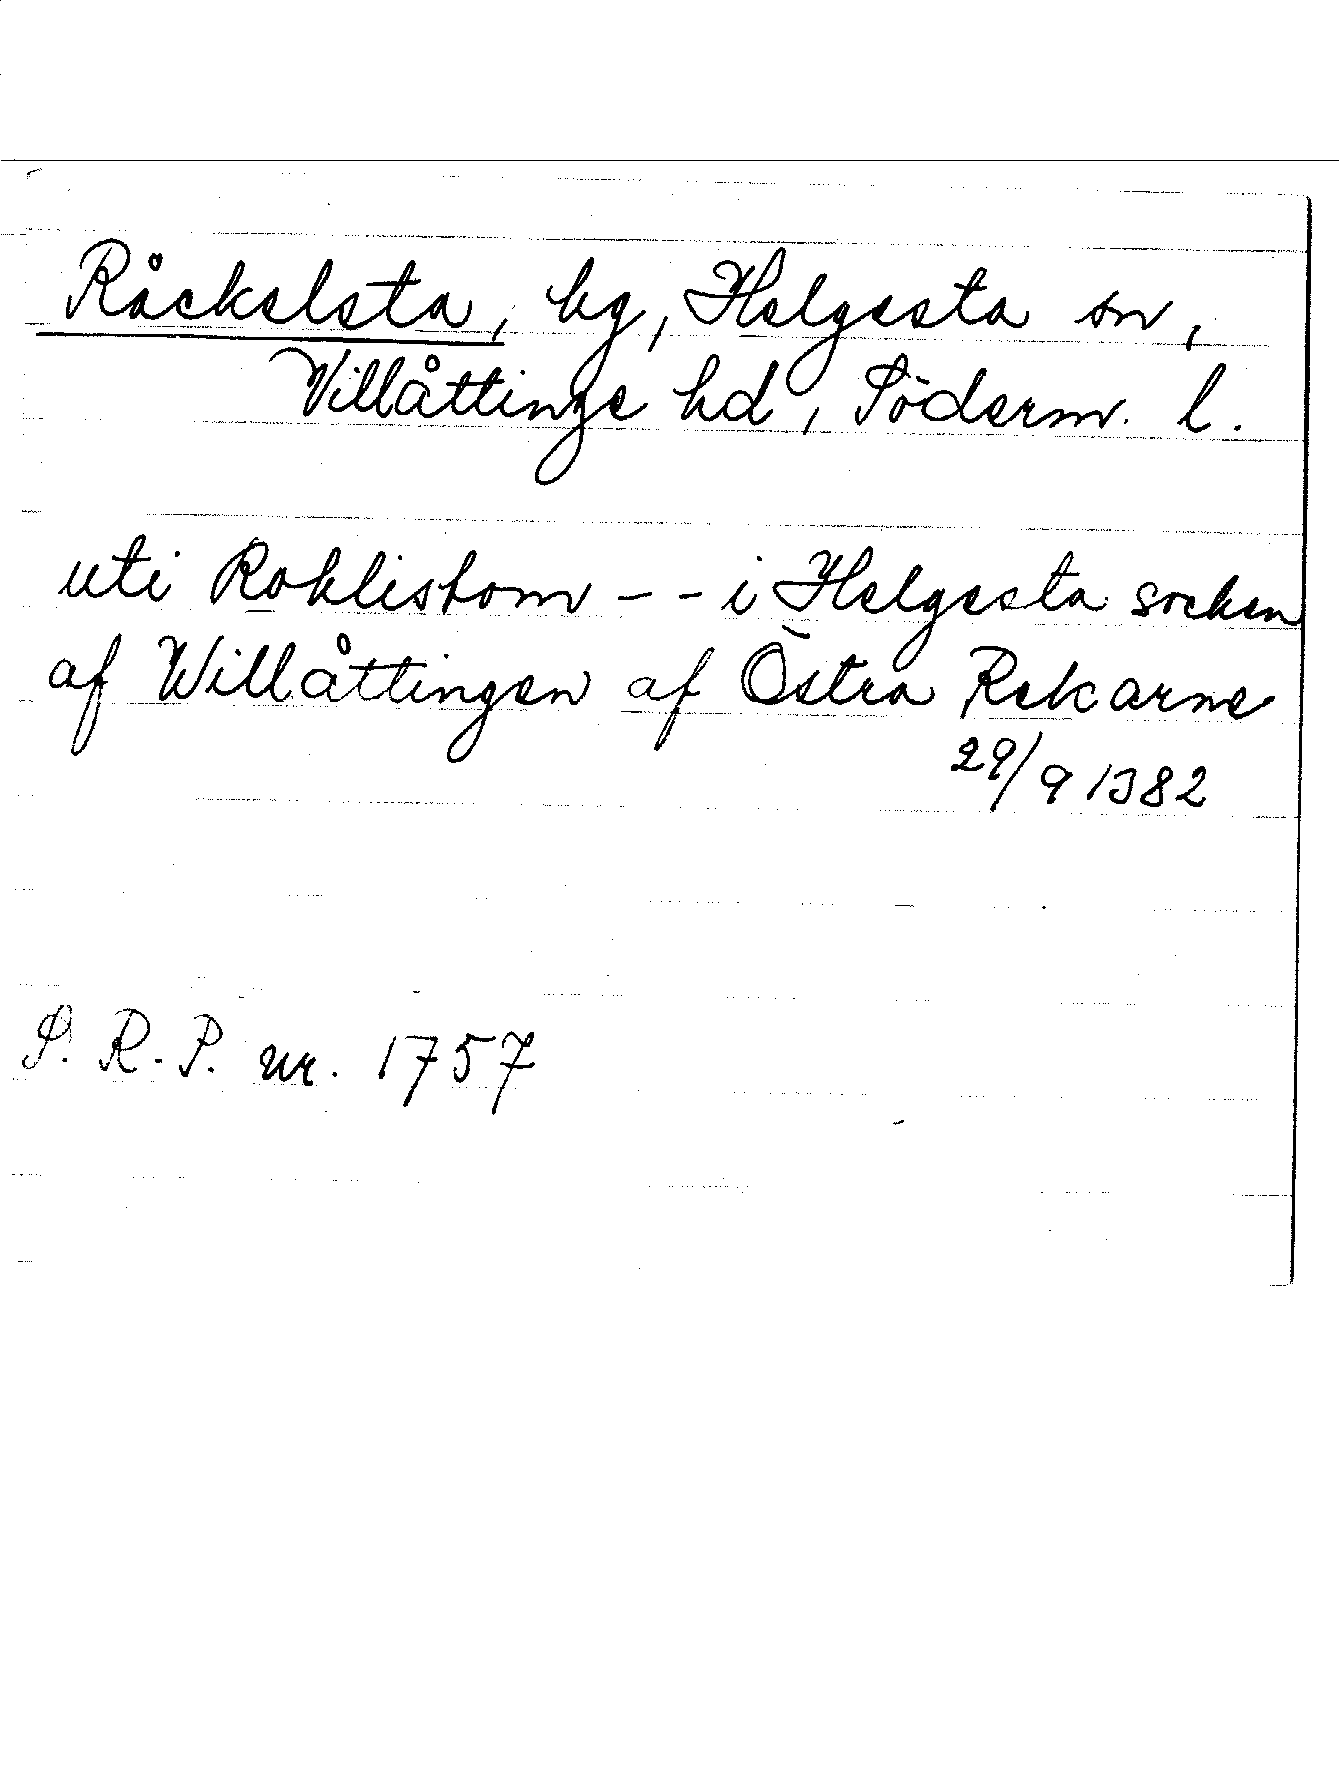 Råckelsta, by, Helgesta sn,
Villåttinge hd, Söderm. l.
uti Roklistom - - i Helgesta socken
af Willåttingen af Östra Rekarne
29/9 1382
S. R. P. nr. 1757